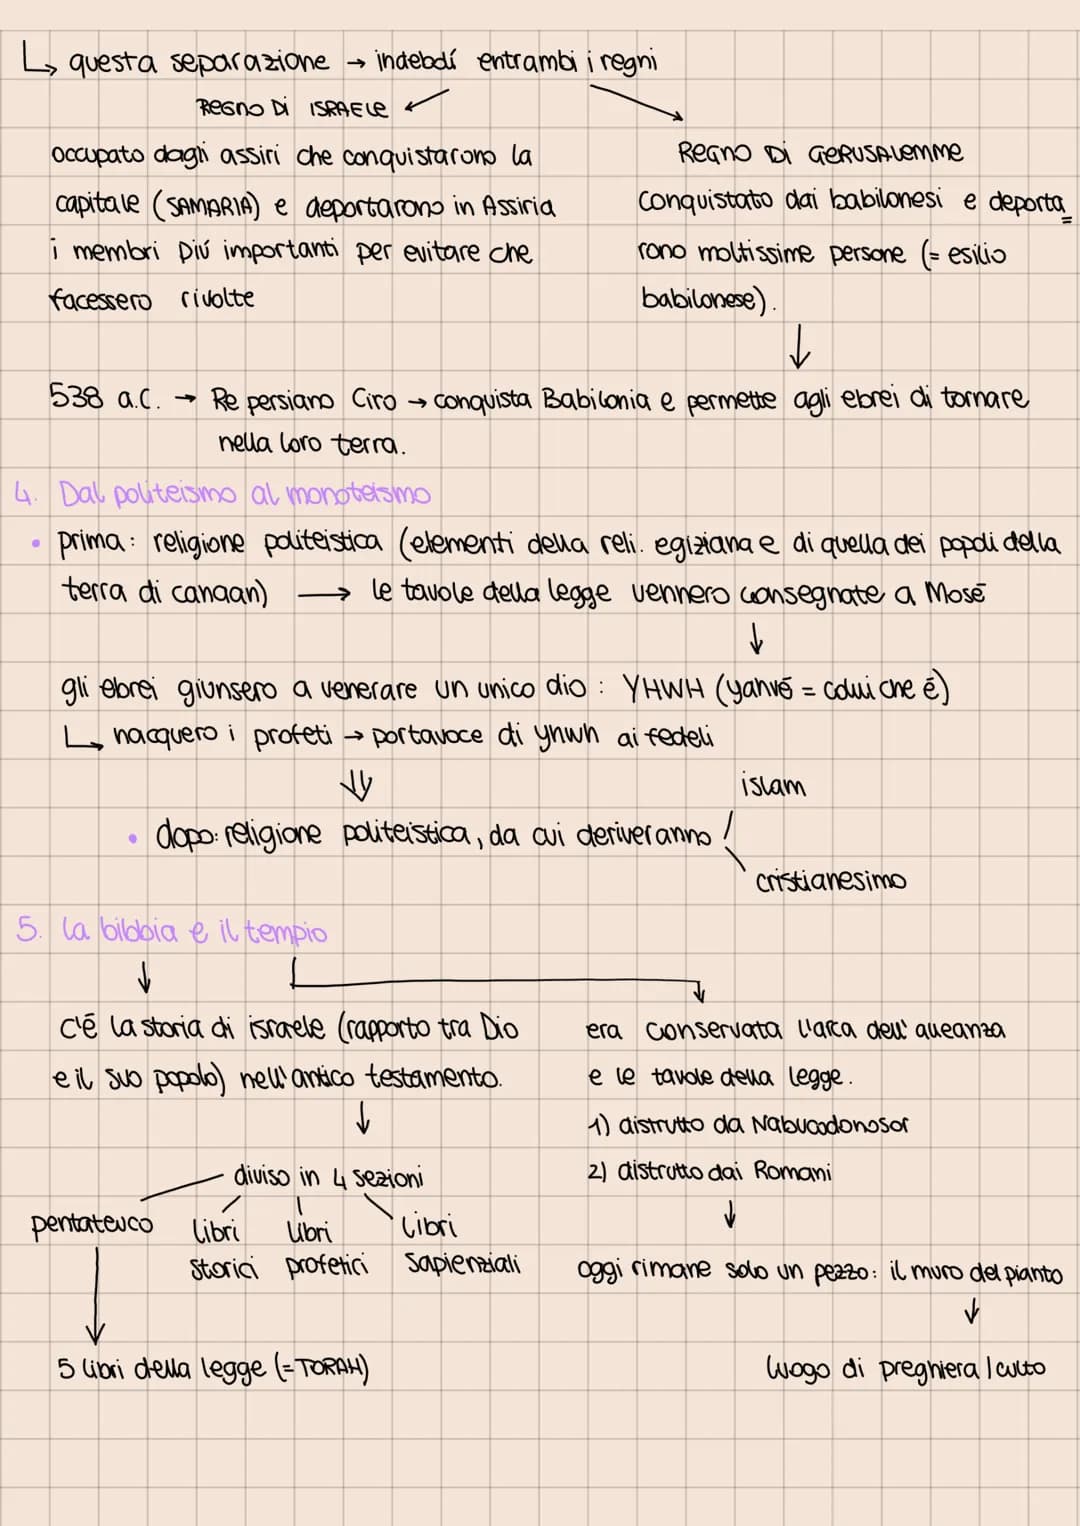 ↳ questa separazione → indebolí entrambi i regni
REGNO DI ISRAELE
occupato dagli assiri che conquistarono la
capitale (SAMARIA) e deportarono in Assiria
i membri piú importanti per evitare che
facessero rivolte
REGNO DI GERUSALEMME
conquistato dai babilonesi e deporta
rono moltissime persone (= esilio
babilonese).
538 a.C. → Re persiano Ciro → conquista Babilonia e permette agli ebrei di tornare
nella loro terra.
4. Dal politeismo al monoteismo
• prima: religione politeistica (elementi della reli. egiziana e di quella dei popoli della
terra di canaan) → le tavole della legge vennero consegnate a Mosé
gli ebrei giunsero a venerare un unico dio : YHWH (yahvé = colui che é)
↳ nacquero i profeti → portavoce di yhwh ai fedeli
• dopo: religione politeistica, da cui deriveranno
islam
cristianesimo
5. La bibbia e il tempio
c'é la storia di israele (rapporto tra Dio
e il suo popolo) nell'antico testamento.
diviso in 4 sezioni
pentateuco
libri
storici
libri
profetici
libri
sapienziali
5 libri della legge (= TORAH)
era conservata l'arca dell'alleanza
e le tavole della legge.
1) distrutto da Nabucodonosor
2) distrutto dai Romani
oggi rimane solo un pezzo: il muro del pianto
luogo di preghiera / culto